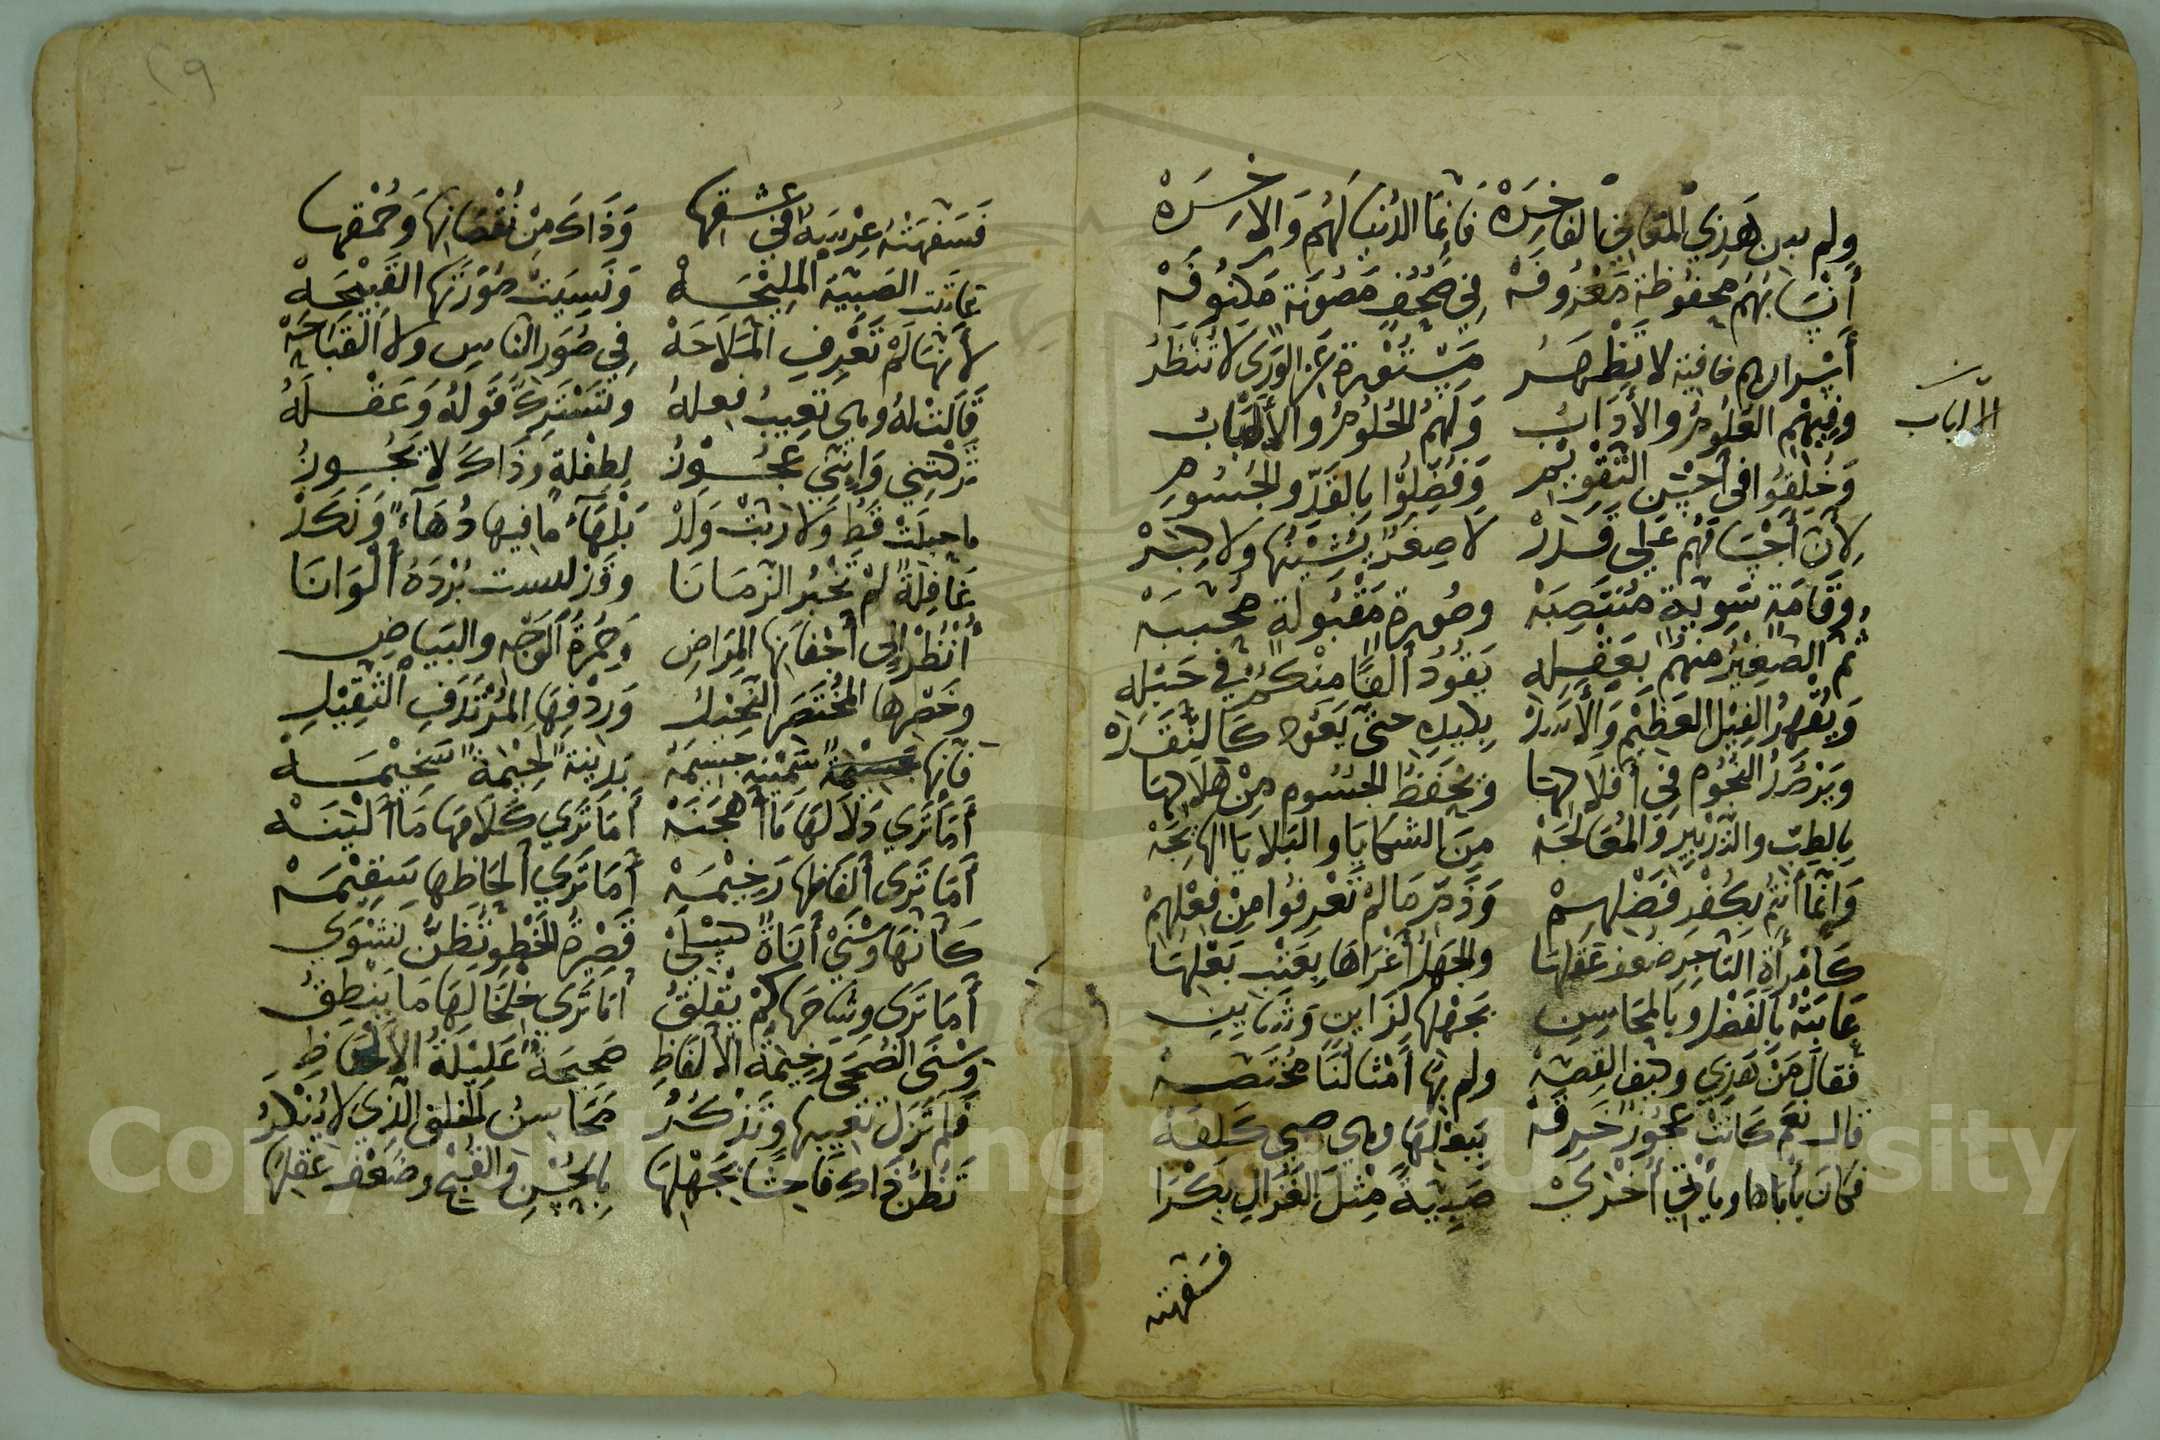 ولم بدن هَذِي الْمَعَانِي الفَاخِرَهْ فَإِنَّمَا الدُّنْيَا لَهُم وَالآخِرَهْ
أَنْسَابُهُم مَحفُوظَة مَعْرُوفَهْ فِي صُحُفٍ مَصُونَة مَكنُوفَهْ
أَسْرارهم خافية لا تَظْهَرُ مَسْتُورة عن الوَرَى لا تُنْظَرُ
وفِيهُم العُلُومُ والأَدَابُ وَلَهُم الحُلُومُ والأَلْبَابُ
الالباب
وَخُلِقُوا في أَحْسَنِ التَّقْوِيْمِ وَفُضِّلُوا بالقَدِّ والجُسُومِ
لأن أَجْسَامَهُم عَلَى قَدَرْ لا صِغَرٌ يَشِيْنُهَا ولا كِبَرْ
وَقَامَة سَوِيَّة مُنْتَصِبَهْ وصُورة مَقْبُولة مُحَبَّبَهْ
ثُمَّ الصَّغِيْرُ مِنْهُمُ بعَقْلِهِ يَقُودُ أَلفًا مِنْكُمُ في حَبْلِهِ
وَيَقْهَرُ الفِيْلَ العَظِيْم وَالأَسَدْ بِكَيدِهِ حتَّى يَعُود كَالنَّقَدْ
وَيَرْصُدُ النُّجُوم في أَفلاكِهَا ويَحْفَظُ الجُسُوم مِنْ هَلاكِهَا
بالطِّبّ والتَّدْبِيرِ وَالمُعَالَجَهْ مِنَ الشَّكَايَا والبَلايَا الهَائِجَهْ
وَإِنَّمَا أَنْتُمْ بكُفْرِ فَضْلِهِمْ وَذَمّ مَا لَمْ تَعْرِفُوا مِنْ فِعْلِهِمْ
كَامْرَأَةِ التَّاجِرِ ضعف عَقْلِهَا والجَهْلُ أَغْرَاهَا بِعَيْبِ بَعْلِهَا
عَابَتْهُ بالفَضْلِ وبالمَحَاسِنِ بجَهْلِهَا لِزَاينٍ وَشَايِنِ
فَقَالَ مَنْ هَذِي وكيف القِصَّهْ ولم بها أَمْثَالُنَا مُخْتَصَّهْ
قال نَعَم كَانَتْ عَجُوزٌ خَرِفَهْ بِبَعْلِهَا وهي صبي كَلِفَهْ
فكَانَ يأبَاها ويأتي أُخْرَى صَبِيَةً مِثْلَ الغَزَالِ بِكْرَا
فسفهته
فَسَفَهَتْهُ عِرْسُهُ في عِشْقِهَا وَذَاكَ مِنْ نُقْصَانِهَا وَحُمْقِهَا
عَابَت الصَّبِيَّةَ المَلِيْحَهْ وَنَسِيَتْ صُوْرَتَهَا القَبِيْحَهْ
لأَنَّهَا لَمْ تَعْرِفِ المَلاَحَهْ في صُوَرِ النَّاسِ ولا القَبَاحَهْ
قَالَتْ لهُ وهي تَعِيبُ فِعلَهُ وتَسْتَرِكُّ قَولَهُ وَعَقْلَهُ
تَرَكْتَنِي وَإِنَّنِي عَجُوْزُ لِطِفْلَةٍ وذَاكَ لا يَجُوزُ
ما حَبِلَتْ قَطُّ وَلا رَبَّتْ وَلَدْ بَلْهَاءُ ما فيها دُهَاءٌ وَنَكَدْ
غَافِلَةٌ لَمْ تَخْبُر الزَّمَانَا وقَد لبست بُرْدَهُ أَلْوَانَا
أُنْظُرْ إلى أَجْفَانِهَا المِرَاضِ وَحُمْرَةِ الوَجْهِ والبَيَاضِ
وخَصْرِهَا المُخْتَصَر النَّحِيْلِ وَرِدْفِهَا المُرْتَدِفِ الثَّقِيْلِ
فَإنَّها سَمِيْنَة جَسِيْمَهْ بَدِينَةٌ لَحِيْمَةٌ شَحِيْمَهْ
أَمَا تَرَى دَلالَهَا مَا أَهْجَنَهْ أَمَا تَرَي كَلاَمَهَا مَا أَلْيَنَهْ
أَمَا تَرَى أَلفَاظَها رَخِيْمَهْ أَمَا تَرَي أَلحَاظِهَا سَقِيْمَهْ
كَأنّهَا وَسْنَى أَنَاةٌ كَسْلَى قَصِيرةُ الخَطْوِ تُظَنُّ نَشْوَى
أَمَا تَرَى وِشَاحَهَا كَمْ يَقْلَقُ أمَا تَرَى خلخَالِهَا مَا يَنْطِقُ
وَسْنَى الضُّحَى رَخِيْمَةُ الألفَاظِ صَحِيحَةٌ عَلِيْلَةُ الأَلْحَاظِ
فَلَم تَزَلْ تعيبها وَتَذْكُرُ مَحَاسِنُ الخلقِ الَّذِي لا يُنْكَرُ
تَظُنُّ ذَاكَ فَاحِشًا بجَهْلِهَا بالحُسْنِ والقُبْحِ وضَعْفِ عَقْلِهَا